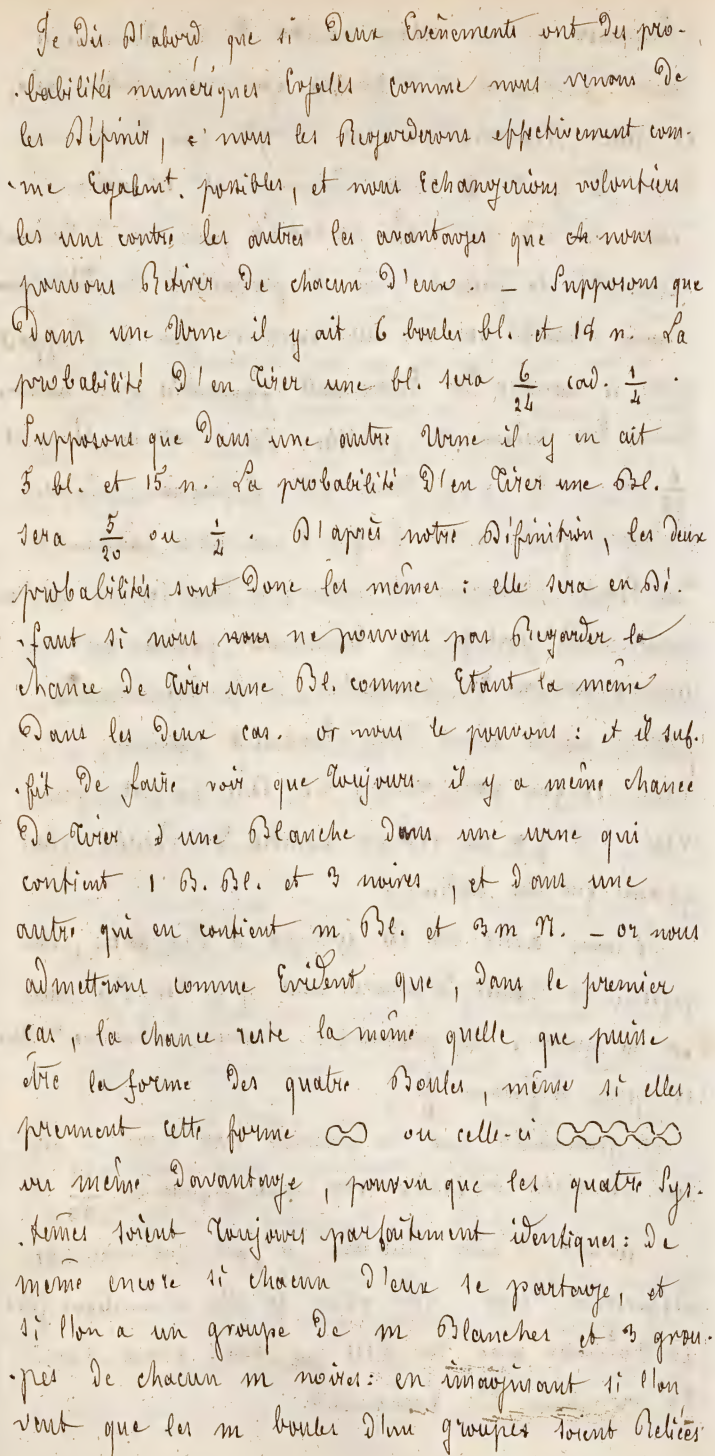 Je dis d'abord que si deux Evênements ont des pro-
-babilités numériques Egales comme nous venons de
les définir, nous les Regarderons effectivement com-
-me Egalemt. possibles, et nous Echangerions volontiers
les uns contre les autres les avantages que nous
pouvons Retirer de chacun d'eux. — Supposons que
dans une Urne il y ait 6 boules bl. et 18 n. La
probabilité d'en Tirer une bl. sera 6/24 cad. 1/4 .
Supposons que dans une autre Urne il y en ait
5 bl. et 15 n. La probabilité d'en Tirer une Bl.
sera 5/20 ou 1/4 . D'après notre définition, les deux
probabilités sont donc les mêmes : elle sera en dé-
-faut si nous nous ne pouvons pas Regarder la
chance de Tirer une Bl. comme Etant la même
dans les deux cas. or nous le pouvons : et il suf-
-fit de faire voir que Toujours il y a même chance
de Tirer une Blanche dans une urne qui
contient 1 B. Bl. et 3 noires, et dans une
autre qui en contient m Bl. et 3m N. — or nous
admettrons comme Evident que, dans le premier
cas, la chance reste la même quelle que puisse
être la forme des quatre Boules, même si elles
prennent cette forme ou celle-ci
ou même davantage, pourvu que les quatre Sys-
-tèmes soient Toujours parfaitement identiques : de
même encore si chacun d'eux se partage, et
si l'on a un groupe de m Blanches et 3 grou-
-pes de chacun m noires : en imaginant si l'on
veut que les m boules d'un groupes soient Reliées